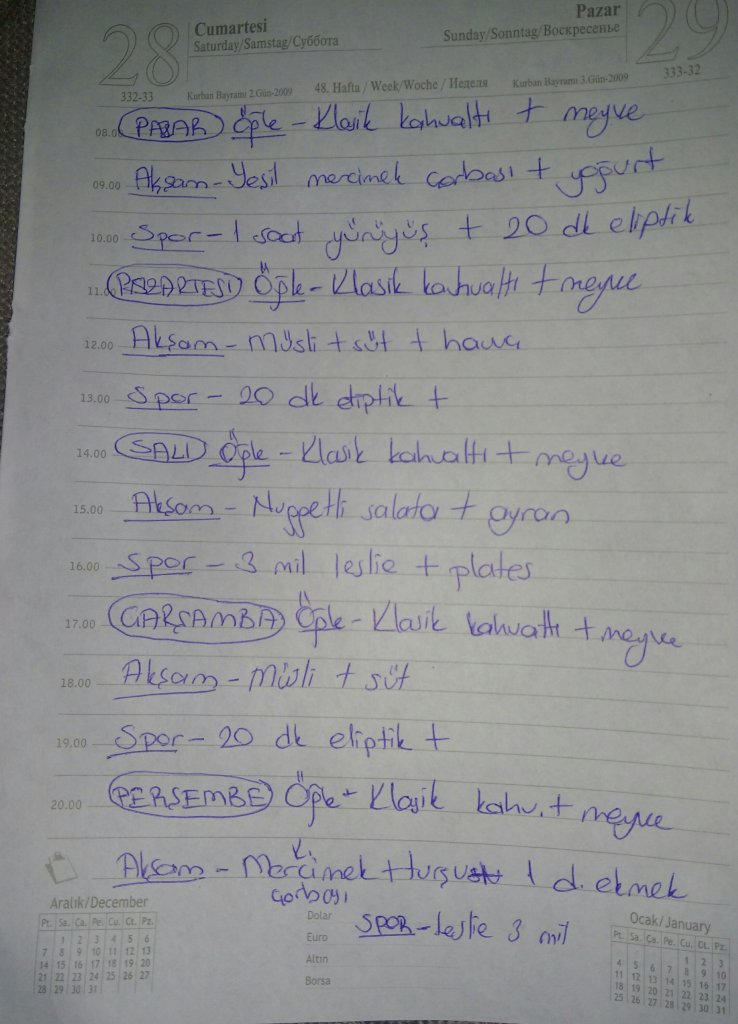 28 Cumartesi Pazar 29
Saturday/Samstag/Суббота Sunday/Sonntag/Воскресенье
332-33 Kurban Bayramı 2.Gün-2009 48. Hafta / Week/Woche / Неделя Kurban Bayramı 3.Gün-2009 333-32
08.00 PAZAR Öğle - Klasik kahvaltı + meyve
09.00 Akşam - Yeşil mercimek çorbası + yoğurt
10.00 Spor - 1 saat yürüyüş + 20 dk eliptik
11.00 PAZARTESİ Öğle - Klasik kahvaltı + meyve
12.00 Akşam - Müsli + süt + havuç
13.00 Spor - 20 dk eliptik +
14.00 SALI Öğle - Klasik kahvaltı + meyve
15.00 Akşam - Nuggetli salata + ayran
16.00 Spor - 3 mil leslie + plates
17.00 ÇARŞAMBA Öğle - Klasik kahvaltı + meyve
18.00 Akşam - Müsli + süt
19.00 Spor - 20 dk eliptik +
20.00 PERŞEMBE Öğle - Klasik kahv. + meyve
Akşam - Mercimek + turşu 1 d. ekmek
çorbası
SPOR - Leslie 3 mil
Aralık/December
Pt. Sa. Ça. Pe. Cu. Ct. Pz.
1 2 3 4 5 6
7 8 9 10 11 12 13
14 15 16 17 18 19 20
21 22 23 24 25 26 27
28 29 30 31
Dolar
Euro
Altın
Borsa
Ocak/January
Pt. Sa. Ça. Pe. Cu. Ct. Pz.
1 2 3
4 5 6 7 8 9 10
11 12 13 14 15 16 17
18 19 20 21 22 23 24
25 26 27 28 29 30 31